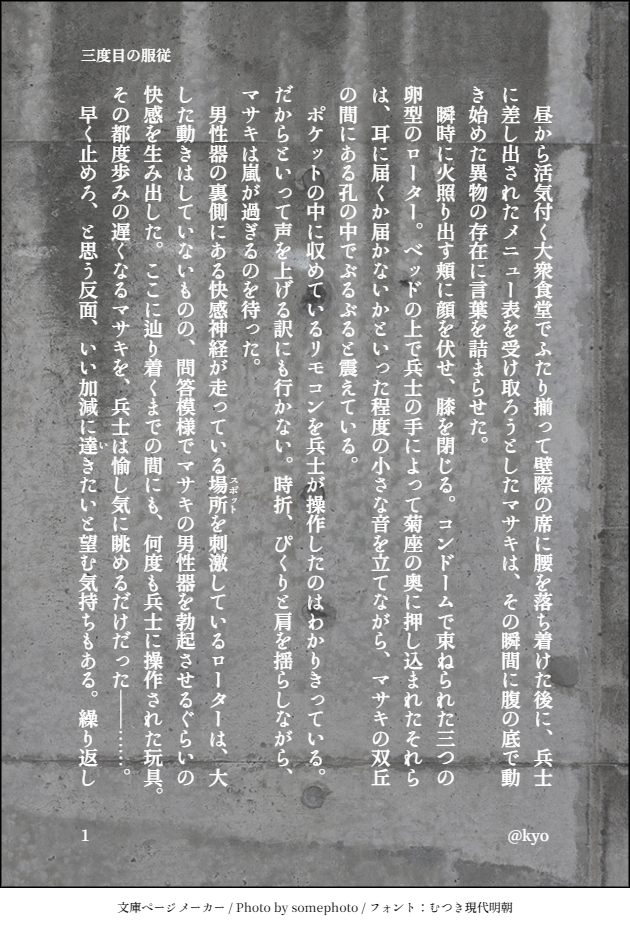 三度目の服従
昼から活気付く大衆食堂でふたり揃って壁際の席に腰を落ち着けた後に、兵士
に差し出されたメニュー表を受け取ろうとしたマサキは、その瞬間に腹の底で動
き始めた異物の存在に言葉を詰まらせた。
瞬時に火照り出す頬に顔を伏せ、膝を閉じる。コンドームで束ねられた三つの
卵型のローター。ベッドの上で兵士の手によって菊座の奥に押し込まれたそれら
は、耳に届くか届かないかといった程度の小さな音を立てながら、マサキの双丘
の間にある孔の中でぶるぶると震えている。
ポケットの中に収めているリモコンを兵士が操作したのはわかりきっている。
だからといって声を上げる訳にも行かない。時折、ぴくりと肩を揺らしながら、
マサキは嵐が過ぎるのを待った。
男性器の裏側にある快感神経が走っている場所スポットを刺激しているローターは、大
した動きはしていないものの、問答模様でマサキの男性器を勃起させるぐらいの
快感を生み出した。ここに辿り着くまでの間にも、何度も兵士に操作された玩具。
その都度歩みの遅くなるマサキを、兵士は愉し気に眺めるだけだった――……。
早く止めろ、と思う反面、いい加減に達いきたいと望む気持ちもある。繰り返し
1
@kyo
文庫ページメーカー / Photo by somephoto / フォント：むつき現代明朝